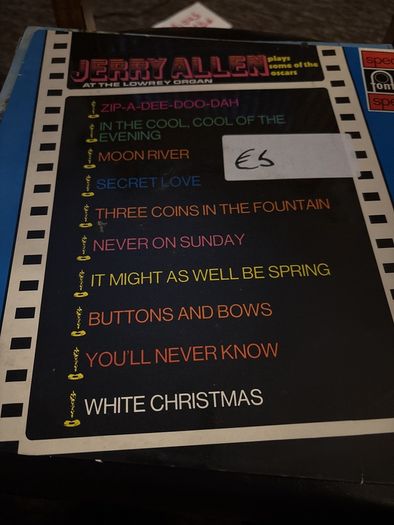 JERRY ALLEN
plays
some of the
oscars
AT THE LOWREY ORGAN
ZIP-A-DEE-DOO-DAH
IN THE COOL, COOL OF THE
EVENING
MOON RIVER
£5
SECRET LOVE
THREE COINS IN THE FOUNTAIN
NEVER ON SUNDAY
IT MIGHT AS WELL BE SPRING
BUTTONS AND BOWS
YOU'LL NEVER KNOW
WHITE CHRISTMAS